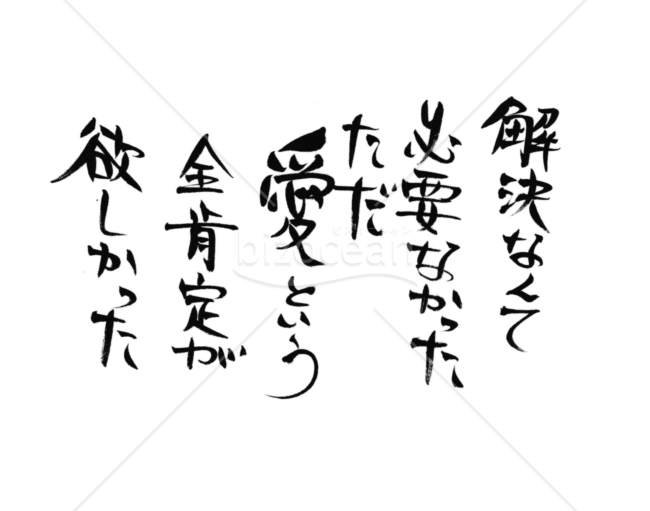 解決なんて
必要なかった
ただ
愛という
全肯定が
欲しかった
bizocean